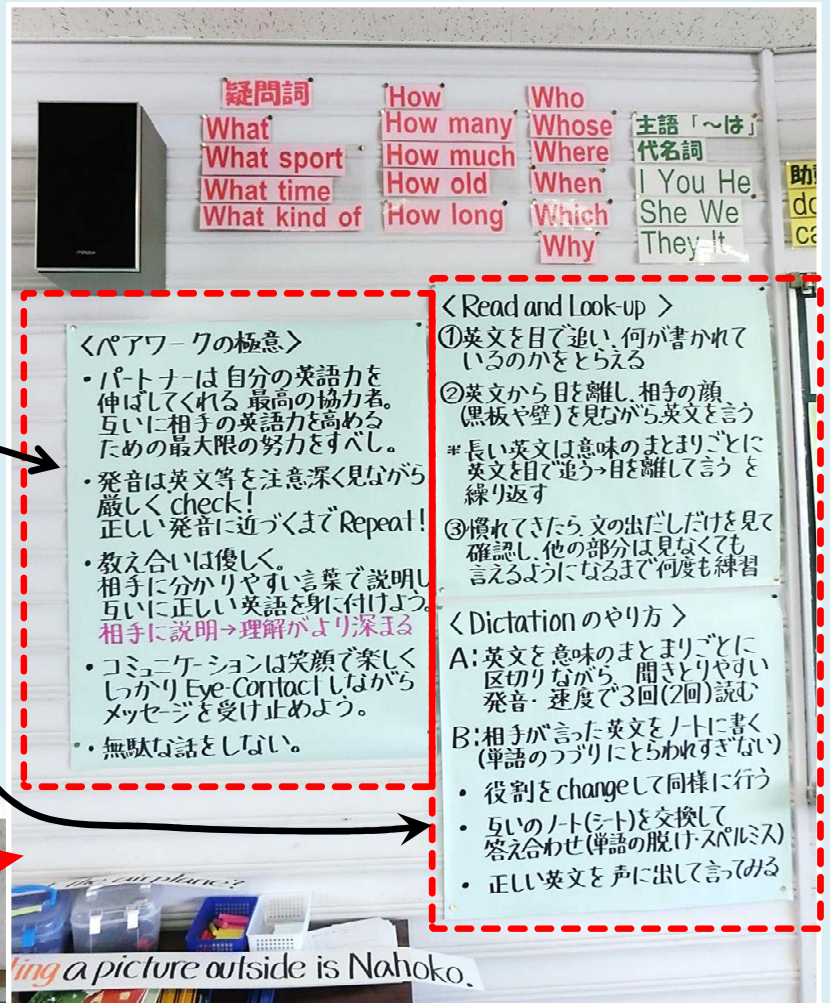 疑問詞
What
What sport
What time
What kind of
How
How many
How much
How old
How long
Who
Whose
Where
When
Which
Why
主語「～は」
代名詞
I You He
She We
They It
<ペアワークの極意>
・パートナーは 自分の英語力を
伸ばしてくれる 最高の協力者。
互いに相手の英語力を高める
ための最大限の努力をすべし。
・発音は英文等を注意深く見ながら
厳しく check!
正しい発音に近づくまで Repeat!
・教え合いは優しく。
相手に分かりやすい言葉で説明し
互いに正しい英語を身に付けよう。
相手に説明→理解がより深まる
・コミュニケーションは笑顔で楽しく
しっかり Eye-Contact しながら
メッセージを受け止めよう。
・無駄な話をしない。
<Read and Look-up>
①英文を目で追い、何が書かれて
いるのかをとらえる
②英文から目を離し、相手の顔
(黒板や壁)を見ながら英文を言う
*長い英文は意味のまとまりごとに
英文を目で追う→目を離して言う を
繰り返す
③慣れてきたら、文の出だしだけを見て
確認し、他の部分は見なくても
言えるようになるまで何度も練習
<Dictation のやり方>
A:英文を意味のまとまりごとに
区切りながら、聞きとりやすい
発音・速度で3回(2回)読む
B:相手が言った英文をノートに書く
(単語のつづりにとらわれすぎない)
・役割をchangeして同様に行う
・互いのノート(シート)を交換して
答え合わせ(単語の脱け・スペルミス)
・正しい英文を声に出して言ってみる
the airplane?
ting a picture outside is Nahoko.